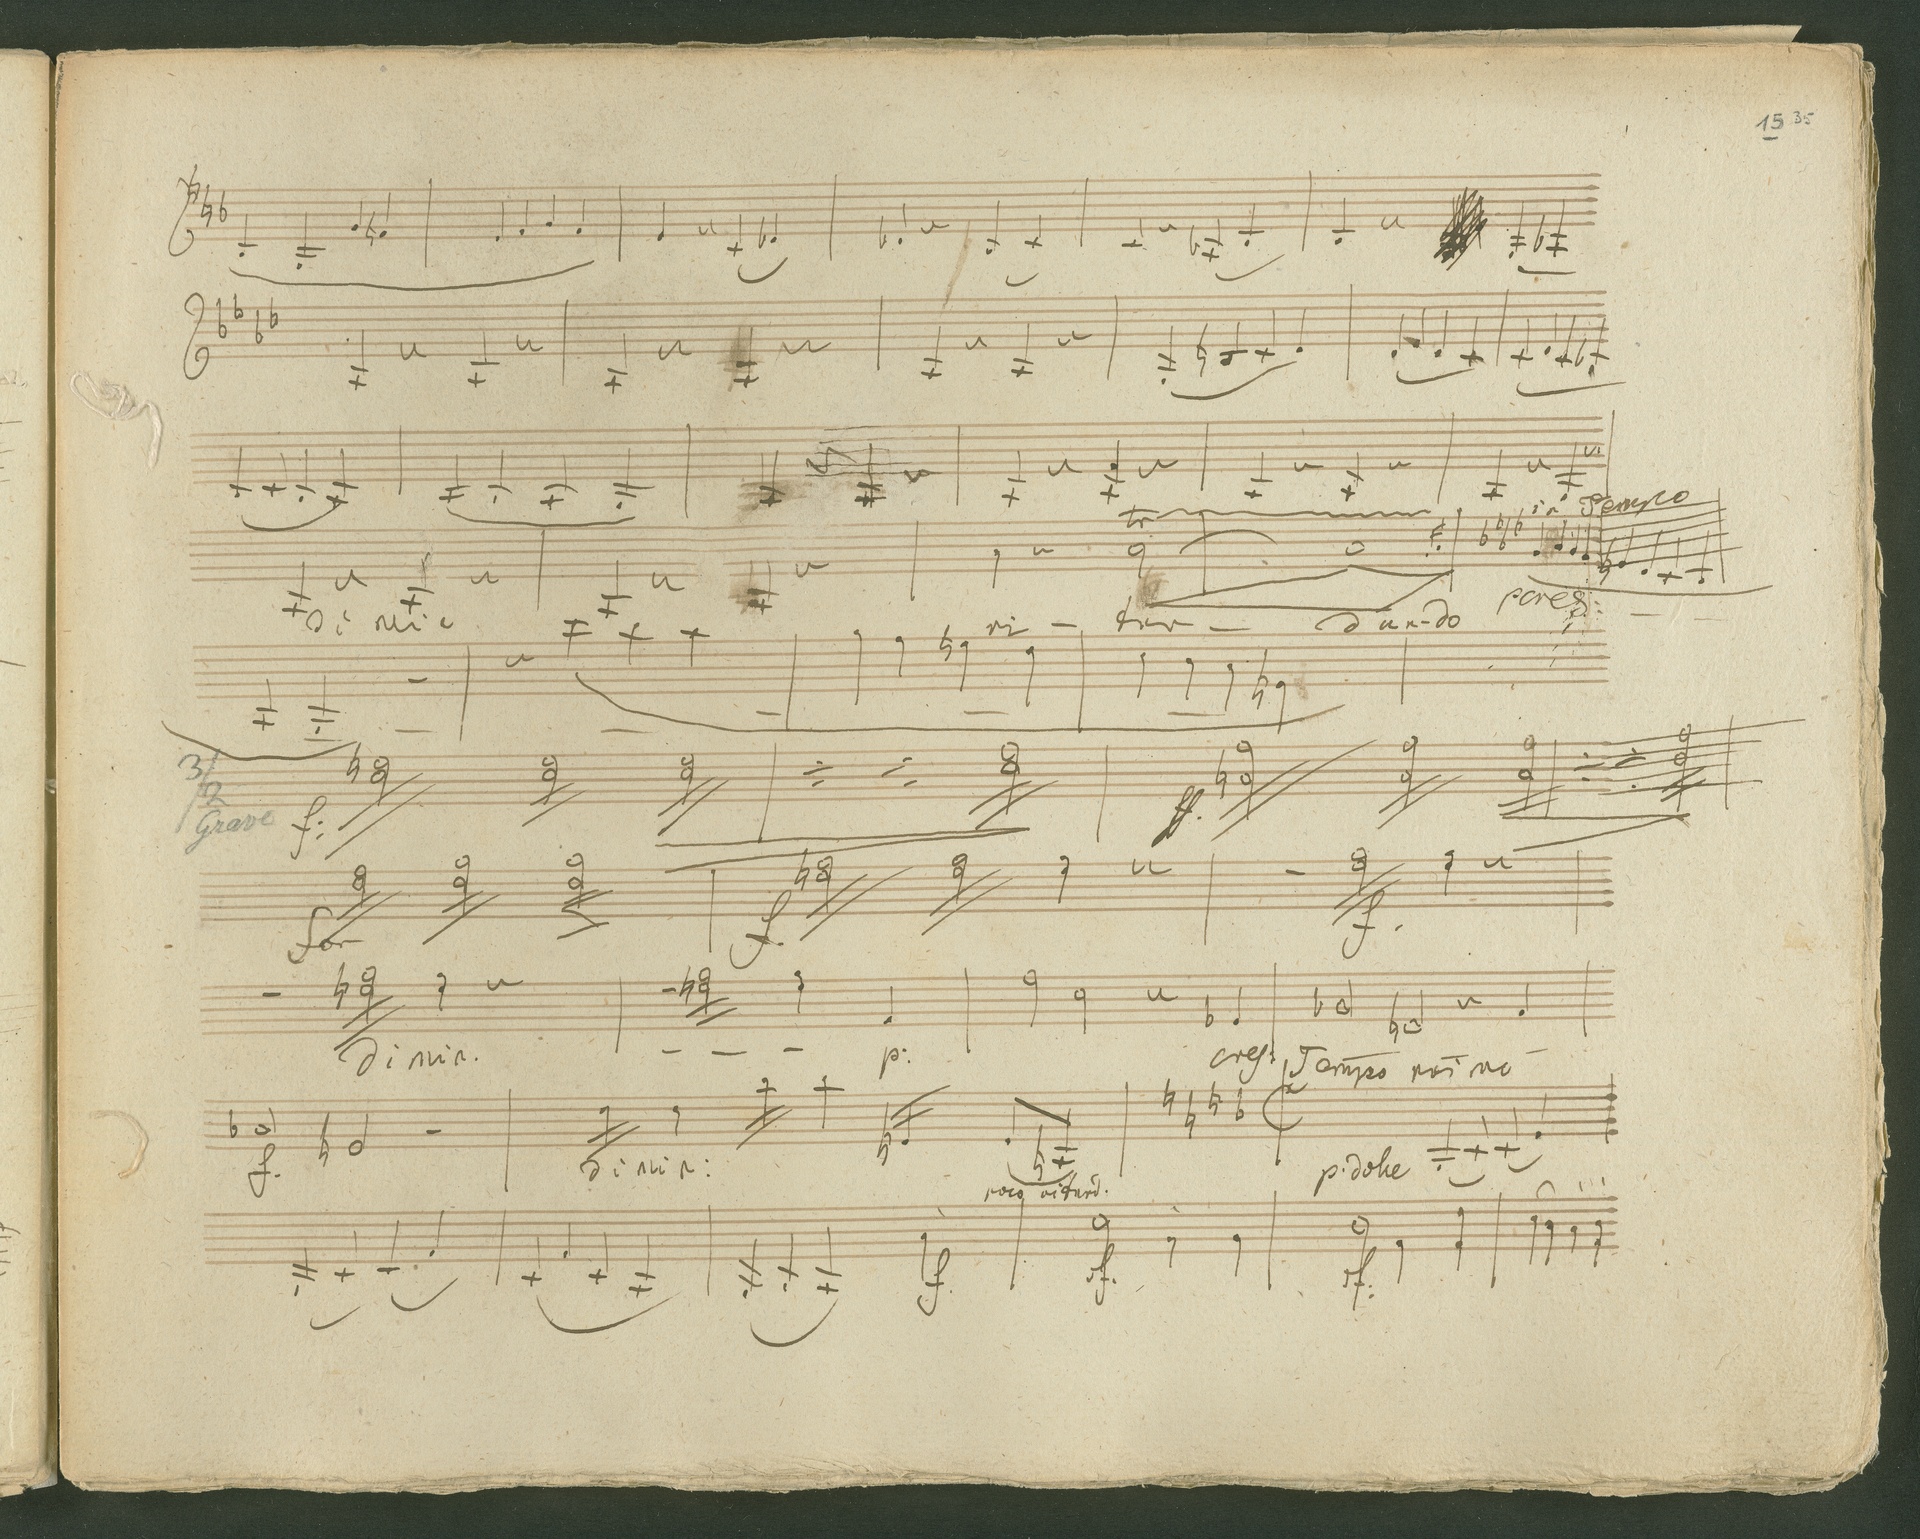 15 35
in Tempo
dimin
ri - tar - dan-do
pcres:
3/2
Grave
f:
ff.
for
f.
f.
dimin.
p:
cres:
Tempo
f.
dimin:
poco ritard:
p. dolce
f.
sf.
sf: